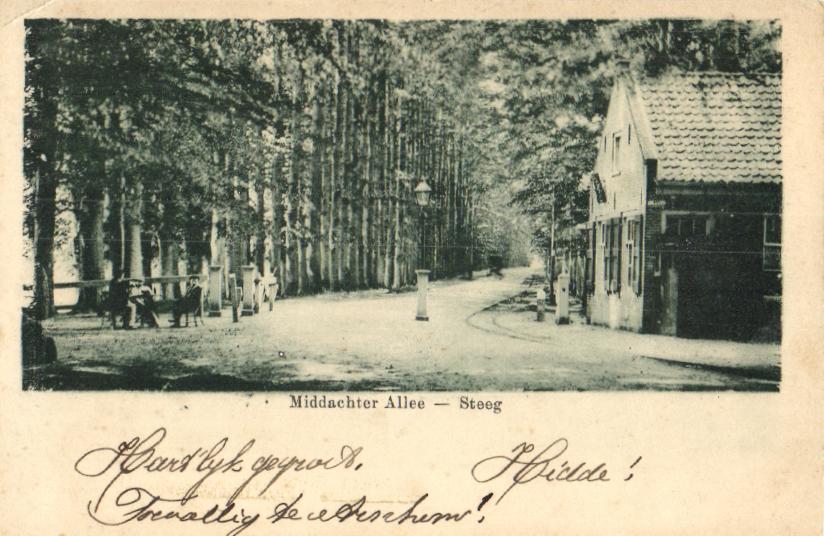 Middachter Allee — Steeg
Hart'lyk gegroet. Hidde!
Toevallig te Arnhem!